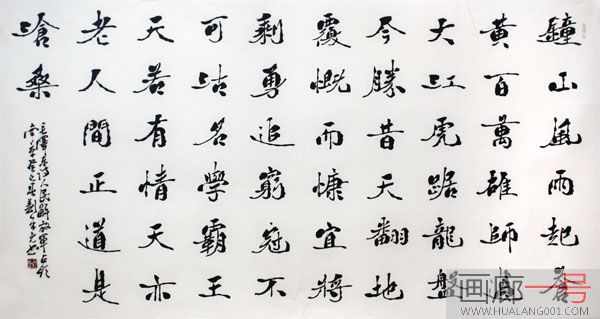 鐘山風雨起蒼
黃百萬雄師過
大江虎踞龍盤
今勝昔天翻地
覆慨而慷宜將
剩勇追窮寇不
可沽名學霸王
天若有情天亦
老人間正道是
滄桑
毛澤東詩人民解放軍占領
南京
画廊一号
WWW.HUALANG001.COM